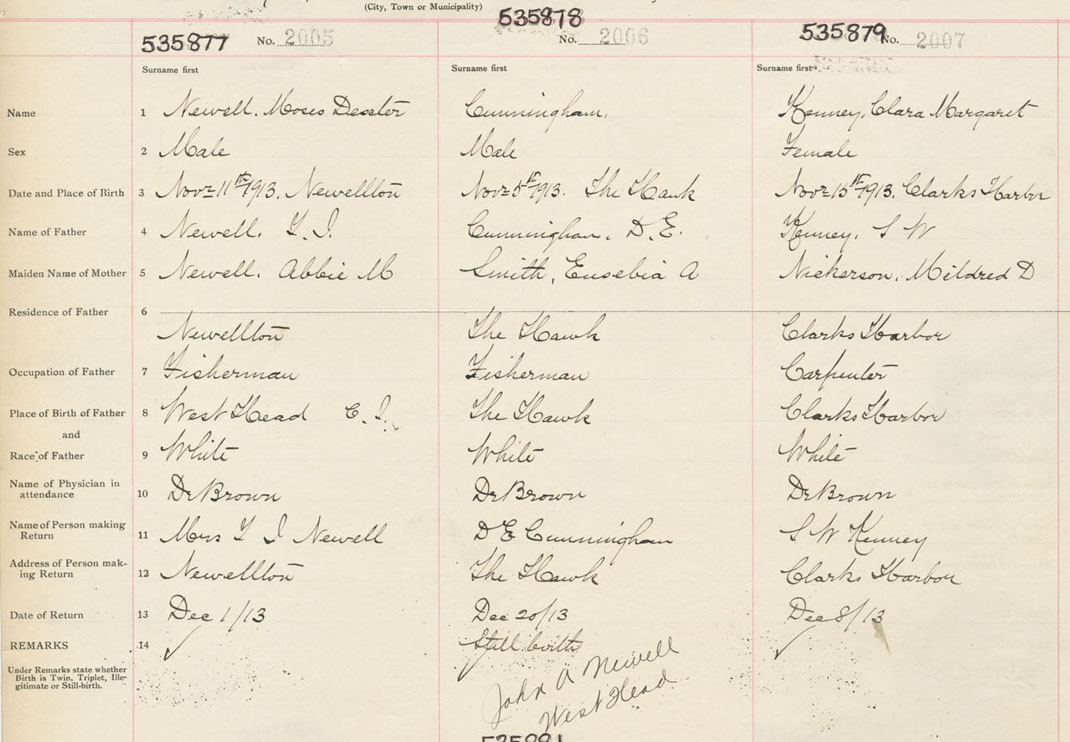 (City, Town or Municipality)
535877 No. 2005 535878 No. 2006 535879 No. 2007
Surname first Surname first Surname first
Name 1 Newell, Moses Dexter Cunningham, Kenney, Clara Margaret
Sex 2 Male Male Female
Date and Place of Birth 3 Nov 11th 1913, Newellton Nov 5th 1913. The Hawk Nov 15th 1913, Clarks Harbor
Name of Father 4 Newell, I. Cunningham, D. E. Kenney, S W
Maiden Name of Mother 5 Newell, Abbie M Smith, Eusebia A Nickerson, Mildred D
Residence of Father 6
Newellton The Hawk Clarks Harbor
Occupation of Father 7 Fisherman Fisherman Carpenter
Place of Birth of Father 8 West Head C. I. The Hawk Clarks Harbor
and
Race of Father 9 White White White
Name of Physician in
attendance 10 Dr Brown Dr Brown Dr Brown
Name of Person making
Return 11 Mrs I Newell D E Cunningham S W Kenney
Address of Person mak-
ing Return 12 Newellton The Hawk Clarks Harbor
Date of Return 13 Dec 1/13 Dec 20/13 Dec 8/13
REMARKS 14 Still birth
Under Remarks state whether
Birth is Twin, Triplet, Ille-
gitimate or Still-birth.
John A Newell
West Head